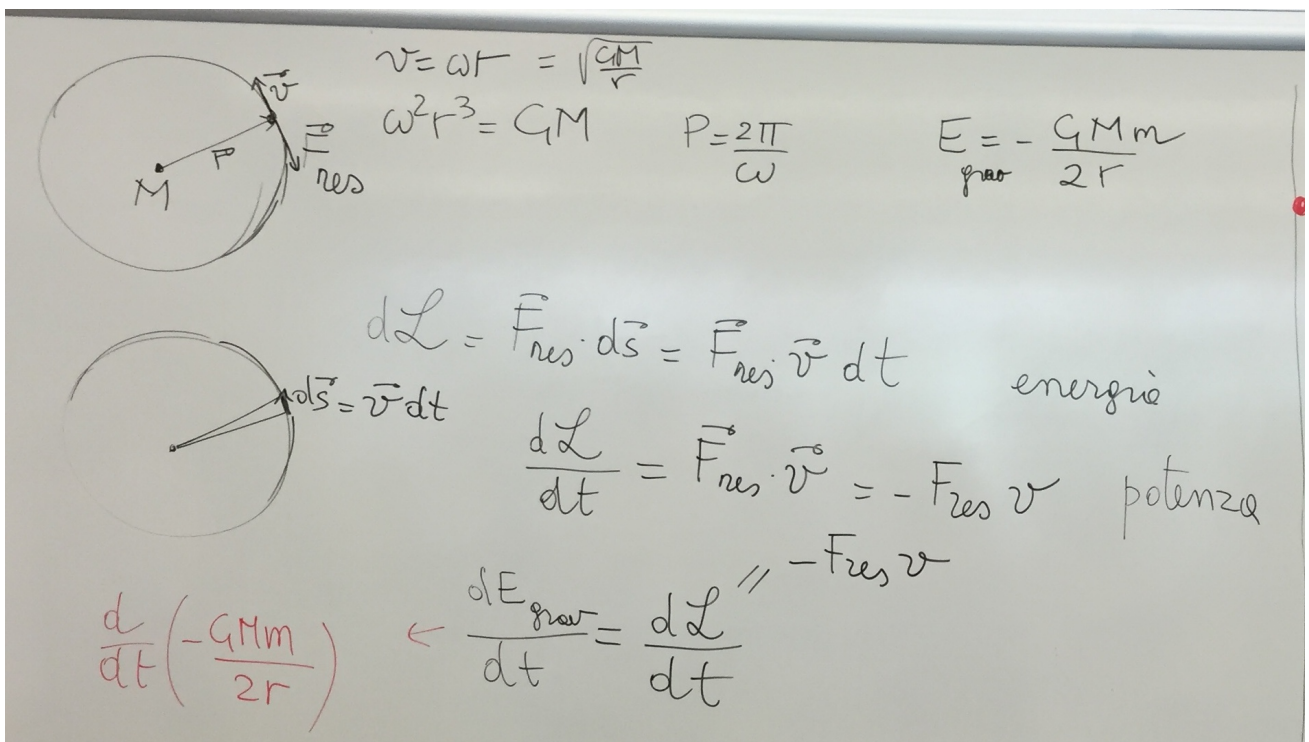 v = ωr = √(GM/r)
ω²r³ = GM
P = 2π/ω
E grav = - GMm/2r
v⃗
r⃗
F⃗ res
M
dℒ = F⃗res · ds⃗ = F⃗res · v⃗ dt
energia
ds⃗ = v⃗ dt
dℒ/dt = F⃗res · v⃗ = - Fres v
potenza
d/dt (- GMm/2r) ← dEgrav/dt = dℒ/dt // - Fres v